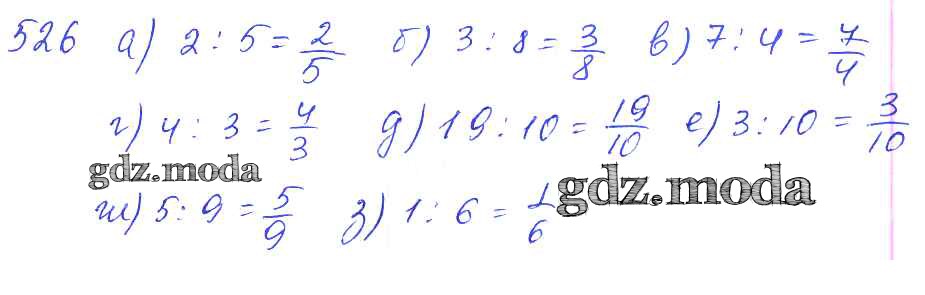 526 а) 2 : 5 = 2/5 б) 3 : 8 = 3/8 в) 7 : 4 = 7/4
г) 4 : 3 = 4/3 д) 19 : 10 = 19/10 е) 3 : 10 = 3/10
gdz.moda gdz.moda
ж) 5 : 9 = 5/9 з) 1 : 6 = 1/6